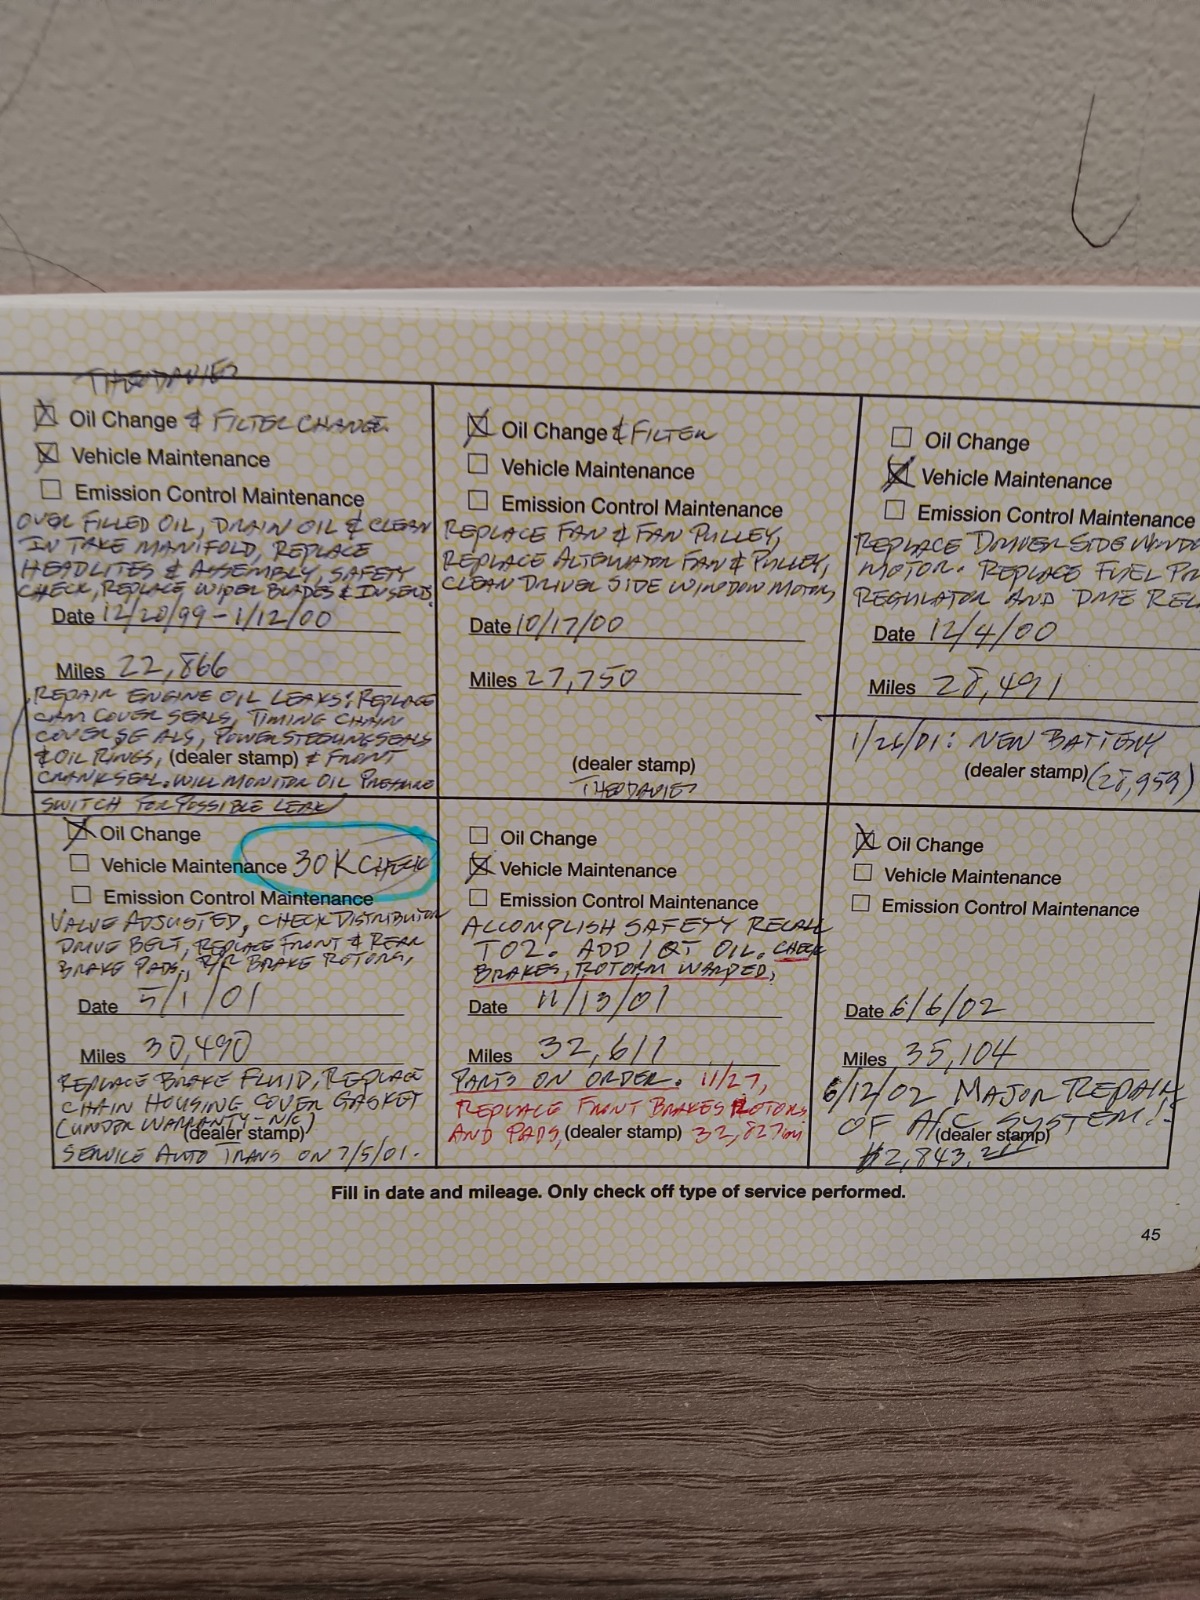 THEO DAVIES
Oil Change & FILTER CHANGE
Vehicle Maintenance
Emission Control Maintenance
OVER FILLED OIL, DRAIN OIL & CLEAN
IN TAKE MANIFOLD, REPLACE
HEADLITES & ASSEMBLY, SAFETY
CHECK, REPLACE WIPER BLADES & INSERTS.
Date 12/20/99 - 1/12/00
Miles 22,866
REPAIR ENGINE OIL LEAKS: REPLACE
CAM COVER SEALS, TIMING CHAIN
COVER SEALS, POWER STEERING SEALS
& OIL RINGS, (dealer stamp) & FRONT
CRANK SEAL. WILL MONITOR OIL PRESSURE
SWITCH FOR POSSIBLE LEAK
Oil Change & FILTER
Vehicle Maintenance
Emission Control Maintenance
REPLACE FAN & FAN PULLEY,
REPLACE ALTENATOR FAN & PULLEY,
CLEAN DRIVER SIDE WINDOW MOTOR,
Date 10/17/00
Miles 27,750
(dealer stamp)
THEO DAVIES
Oil Change
Vehicle Maintenance
Emission Control Maintenance
REPLACE DRIVER SIDE WINDO
MOTOR. REPLACE FUEL
REGULATOR AND DME REL
Date 12/4/00
Miles 28,491
1/26/01: NEW BATTERY
(dealer stamp) (28,959)
Oil Change
Vehicle Maintenance 30K CHECK
Emission Control Maintenance
VALVE ADJUSTED, CHECK DISTRIBUTOR
DRIVE BELT, REPLACE FRONT & REAR
BRAKE PADS, R/R BRAKE ROTORS,
Date 5/1/01
Miles 30,490
REPLACE BRAKE FLUID, REPLACE
CHAIN HOUSING COVER GASKET
(UNDER WARRANTY - N/C)
(dealer stamp)
SERVICE AUTO TRANS ON 7/5/01.
Oil Change
Vehicle Maintenance
Emission Control Maintenance
ACCOMPLISH SAFETY RECALL
T02. ADD 1 QT OIL. CHECK
BRAKES, ROTORM WARPED,
Date 11/13/01
Miles 32,611
PARTS ON ORDER. 11/27,
REPLACE FRONT BRAKES ROTORS
AND PADS, (dealer stamp) 32,827 mi
Oil Change
Vehicle Maintenance
Emission Control Maintenance
Date 6/6/02
Miles 35,104
6/12/02 MAJOR REPAIR
OF A/C SYSTEM!!
(dealer stamp)
$2,843.
Fill in date and mileage. Only check off type of service performed.
45